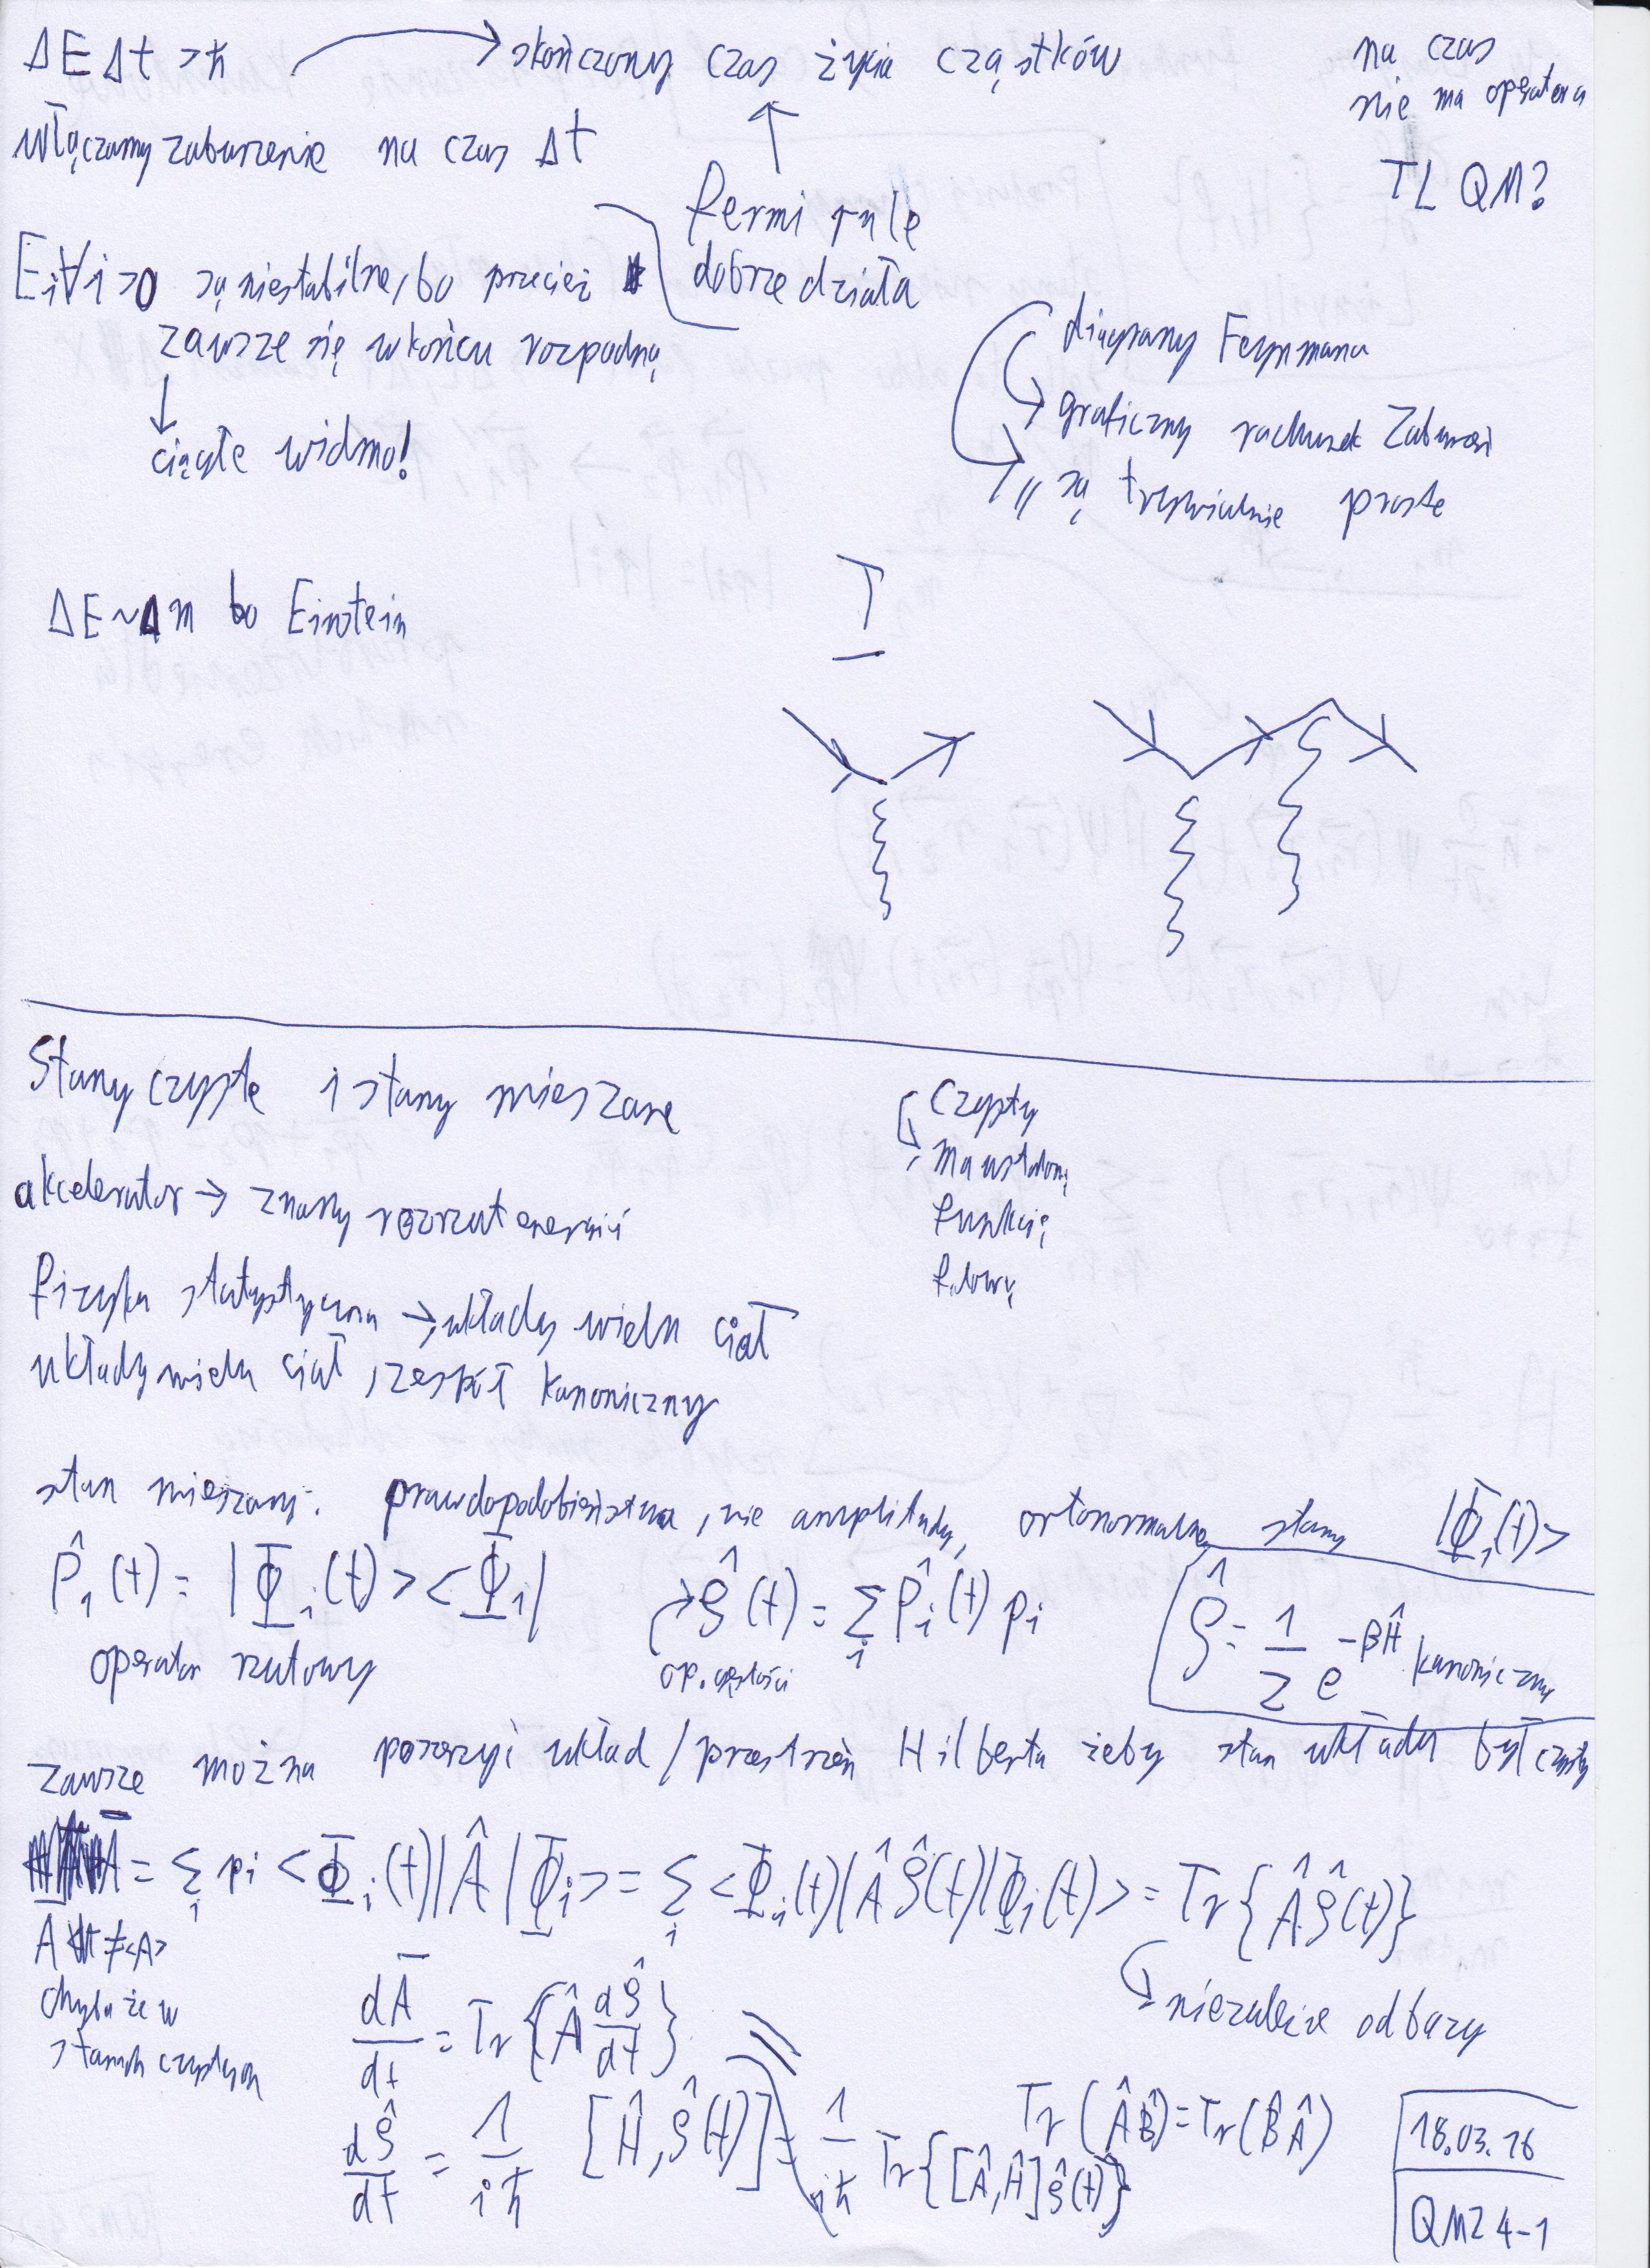 ΔEΔt >ħ → skończony czas życia cząstków
na czas
nie ma operatora
TL QM?
włączamy zaburzenie na czas Δt
Fermi rule
dobrze działa
E_i ∀i>0 są niestabilne, bo przecież
zawsze się w końcu rozpadną
↓
ciągłe widmo!
diagramy Feynmana
graficzny rachunek zaburzeń
są trywialnie proste
ΔE~Δm bo Einstein
Stany czyste i stany mieszane
Czysty
ma ustaloną
funkcję
falową
akcelerator → znany rozrzut energii
fizyka statystyczna → układy wielu ciał
układy wielu ciał, zespół kanoniczny
stan mieszany: prawdopodobieństwa, nie amplitudy, ortonormalne stany |Φ_i(t)>
P̂_i(t) = |Φ_i(t)><Φ_i|
operator rzutowy
ρ̂(t) = Σ_i P̂_i(t) p_i
op. gęstości
ρ̂ = 1/Z e^{-βĤ} kanoniczny
zawsze można poszerzyć układ/przestrzeń Hilberta żeby stan układu był czysty
Ā = Σ_i p_i <Φ_i(t)|Â|Φ_i> = Σ_i <Φ_i(t)|Âρ̂(t)|Φ_i(t)> = Tr{Âρ̂(t)}
Ā ≠ <A>
chyba że w
stanach czystych
niezależnie od bazy
dĀ/dt = Tr{Â dρ̂/dt}
dρ̂/dt = 1/iħ [Ĥ,ρ̂(t)]
= 1/iħ Tr{[Â,Ĥ]ρ̂(t)}
Tr(ÂB̂)=Tr(B̂Â)
18.03.16
QM2 4-1